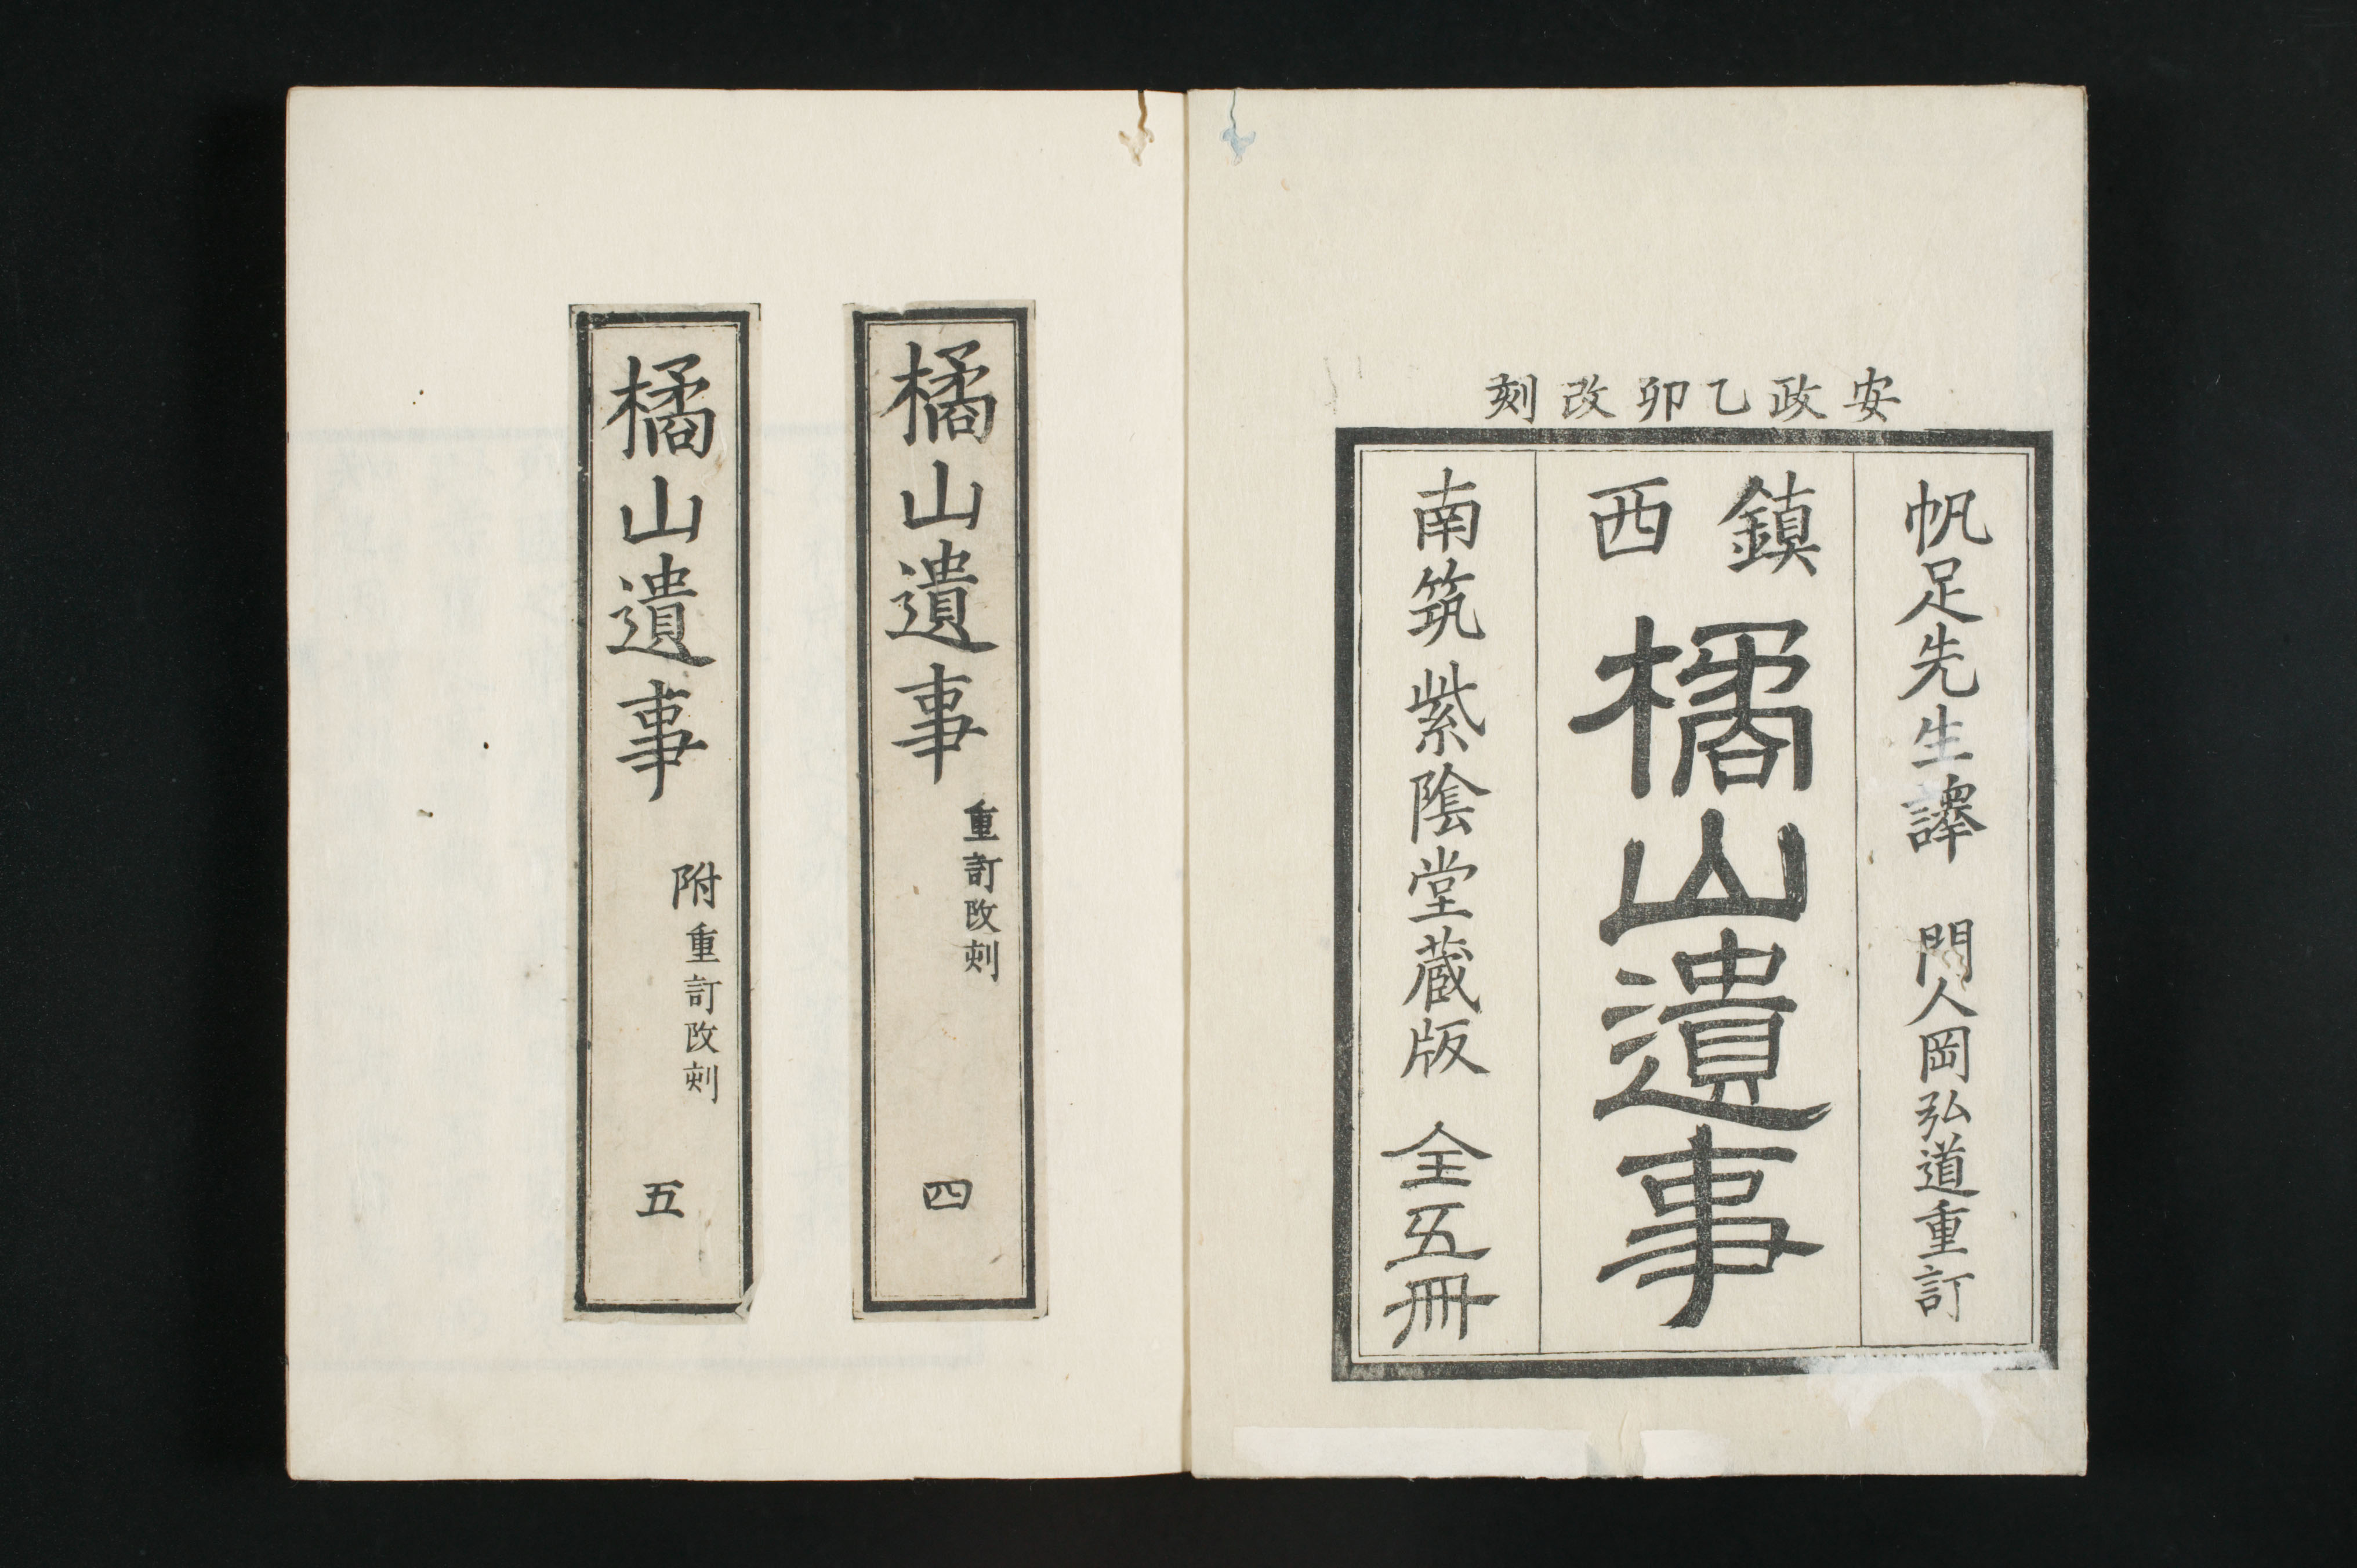 安政乙卯改刻
帆足先生譯　門人岡弘道重訂
鎮西
橘山遺事
南筑　紫陰堂蔵版　全五冊
橘山遺事　重訂改刻　四
橘山遺事　附　重訂改刻　五